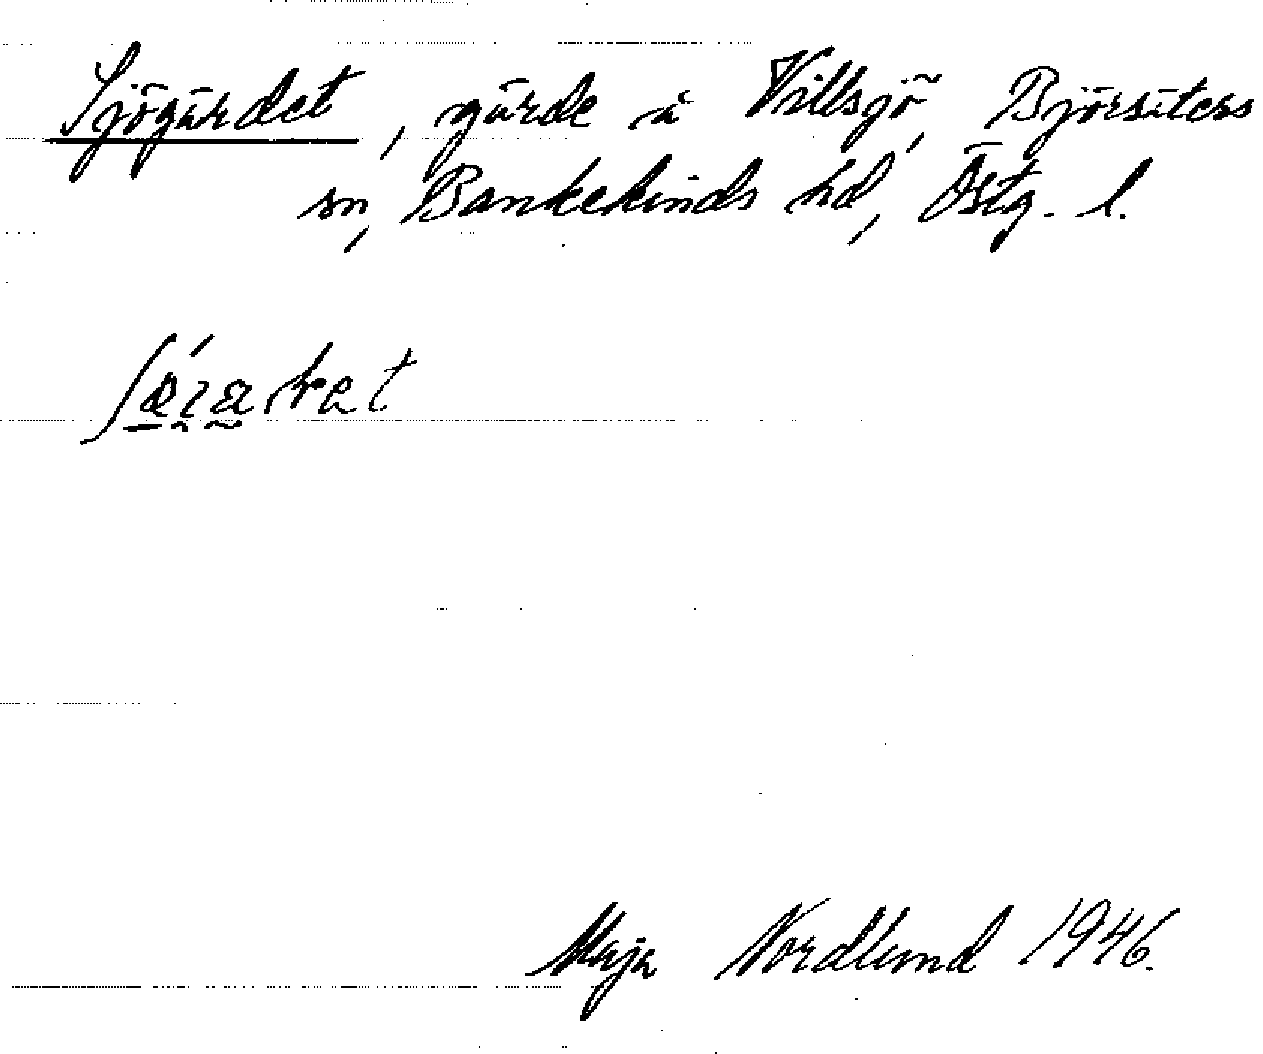 Sjögärdet, gärde å Villsjö, Björsäters
sn, Bankekinds hd, Östg. l.
Maja Nordlund 1946.